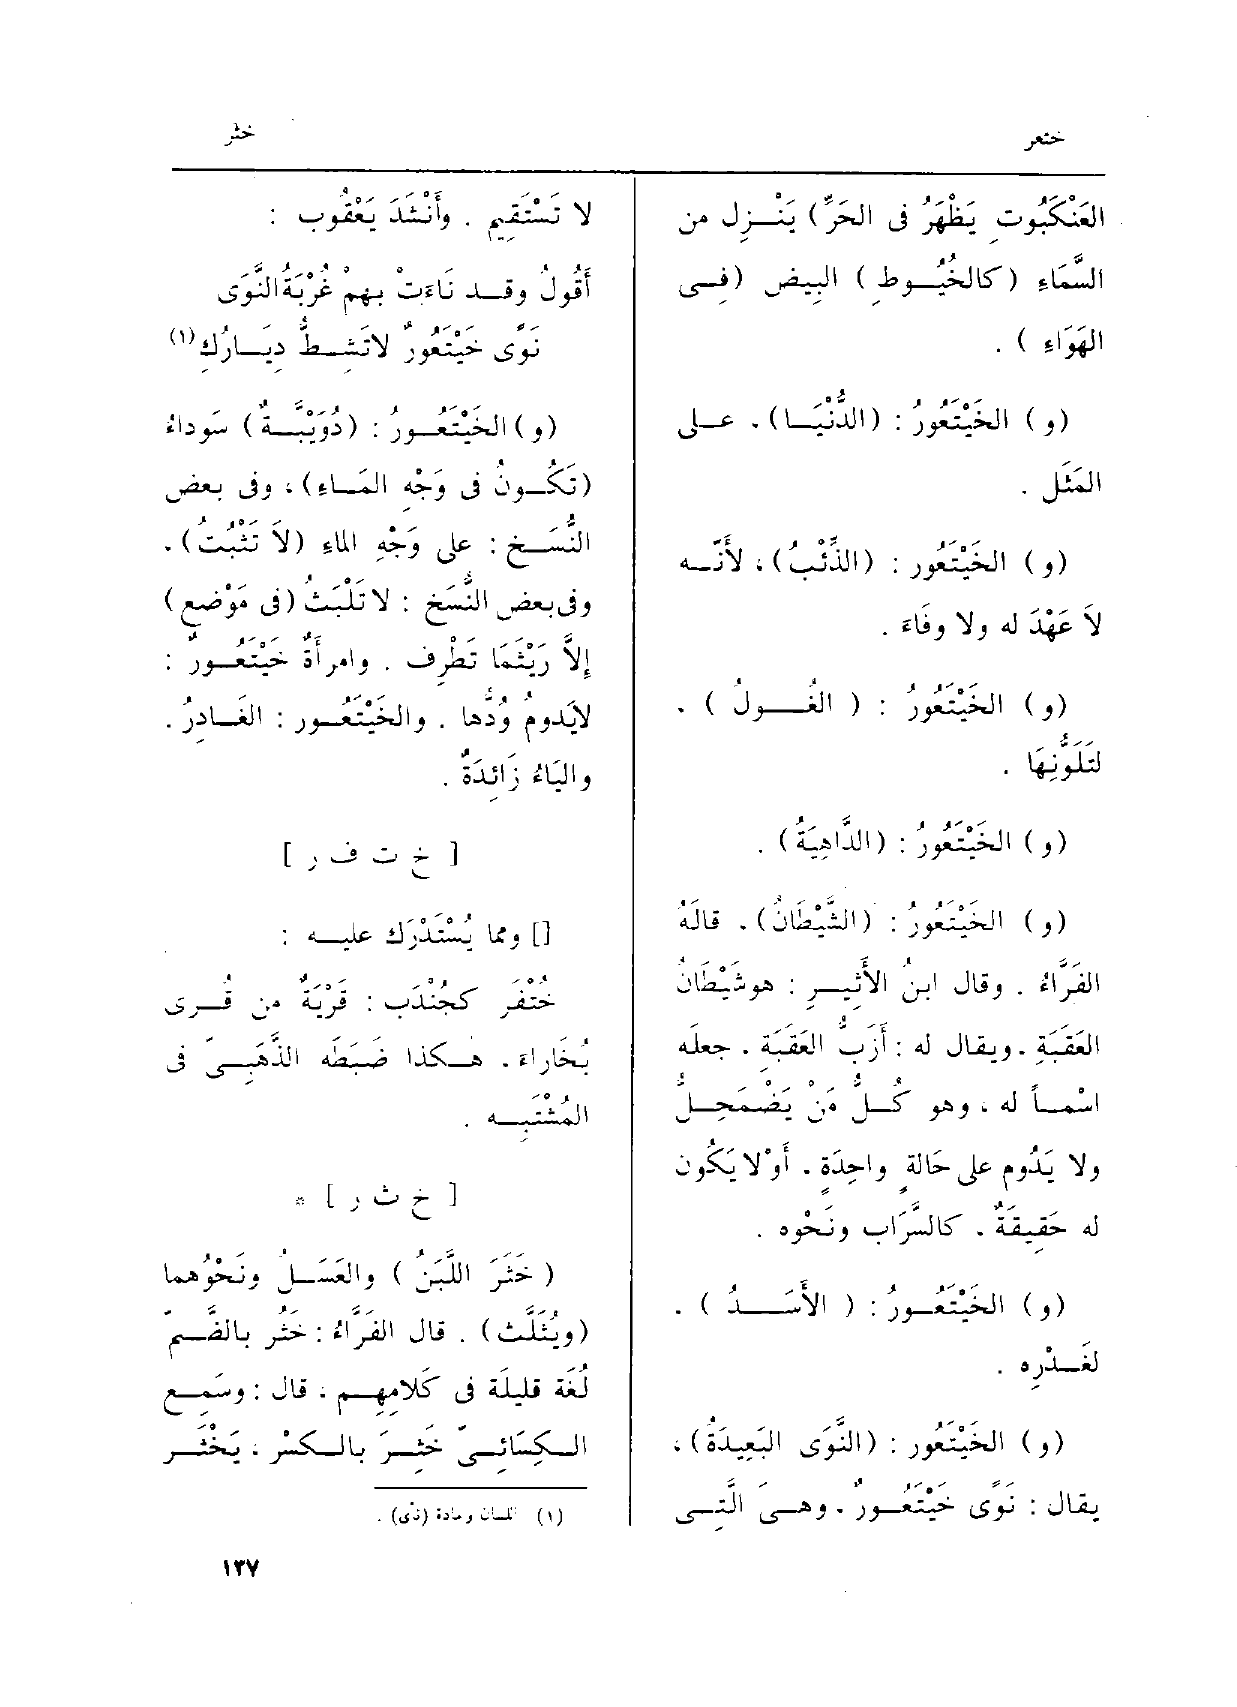 ختعر
خثر
العَنْكَبُوتِ يَظْهَرُ فى الحَرِّ) يَنْـزِل من
السَّمَاءِ (كالخُيُـوط) البِيض (فِـى
الهَوَاءِ ) .
(و) الخَيْتَعُورُ : (الدُّنْيَـا) . عـلى
المَثَل .
(و) الخَيْتَعُور : (الذِّئْبُ) ، لأَنَّـه
لاَ عَهْدَ له ولا وفَاءَ .
(و) الخَيْتَعُورُ : ( الغُـــولُ ) .
لتَلَوُّنِهَا .
(و) الخَيْتَعُورُ : (الدَّاهِيَةُ) .
(و) الخَيْتَعُورُ : (الشَّيْطَانُ) . قالَهُ
الفَرَّاءُ . وقال ابنُ الأَثِيـرِ : هوشَيْطَانُ
العَقَبَةِ . ويقال له : أَزَبُّ العَقَبَةِ . جعلَه
اسْمـاً له ، وهو كُـلُّ مَنْ يَضْمَحِـلُّ
ولا يَدُوم على حَالةٍ واحِدَةٍ . أَوْلا يَكُون
له حَقِيقَةٌ . كالسَّرَاب ونَحْوِه .
(و) الخَيْتَعُـورُ : ( الأَسَـــدُ ) .
لغَـدْرِه .
(و) الخَيْتَعُور : (النَّوَى البَعِيدَةُ) ،
يقال : نَوًى خَيْتَعُـورٌ . وهـىَ الَّتِـى
لا تَسْتَقِيم . وأَنْشَدَ يَعْقُوب :
أَقُولُ وقـد نَاءَتْ بهِمْ غُرْبَةُ النَّوَى
نَوًى خَيْتَعُورٌ لاتَشِـطُّ دِيَـارُكِ (١)
(و) الخَيْتَعُـورُ : (دُوَيْبَّـةٌ) سَوداءُ
(تَكُـونُ فى وَجْهِ المَـاءِ) ، وفى بعض
النُّسَـخ : على وَجْهِ الماءِ (لاَ تَثْبُتُ) .
وفى بعض النُّسَخ : لا تَلْبَثُ (فى مَوْضع)
إِلاَّ رَيْثَمَا تَطْرِف . وامرأَةٌ خَيْتَعُـورٌ :
لايَدومُ وُدُّها . والخَيْتَعُـور : الغَـادِرُ .
واليَاءُ زَائِدَةٌ .
[ خ ت ف ر ]
[] ومما يُسْتَدْرَك عليـه :
خُتْفَر كجُنْدَب : قَرْيَةٌ من قُـرى
بُخَاراءَ . هـكذا ضَبَطَه الذَّهَبِـىّ فى
المُشْتَبِـه .
[ خ ث ر ] *
( خَثَرَ اللَّبَنُ ) والعَسَـلُ ونَحْوُهما
(ويُثَلَّث) . قال الفَرَّاءُ : خَثُر بالضَّـمّ
لُغَة قلِيلَة فى كَلامِهِـم ، قال : وسَمِـع
الـكِسَائِـىّ خَثِـرَ بالـكسْر ، يَخْثَـر
(١) اللسان ومادة (نوى) .
١٢٧